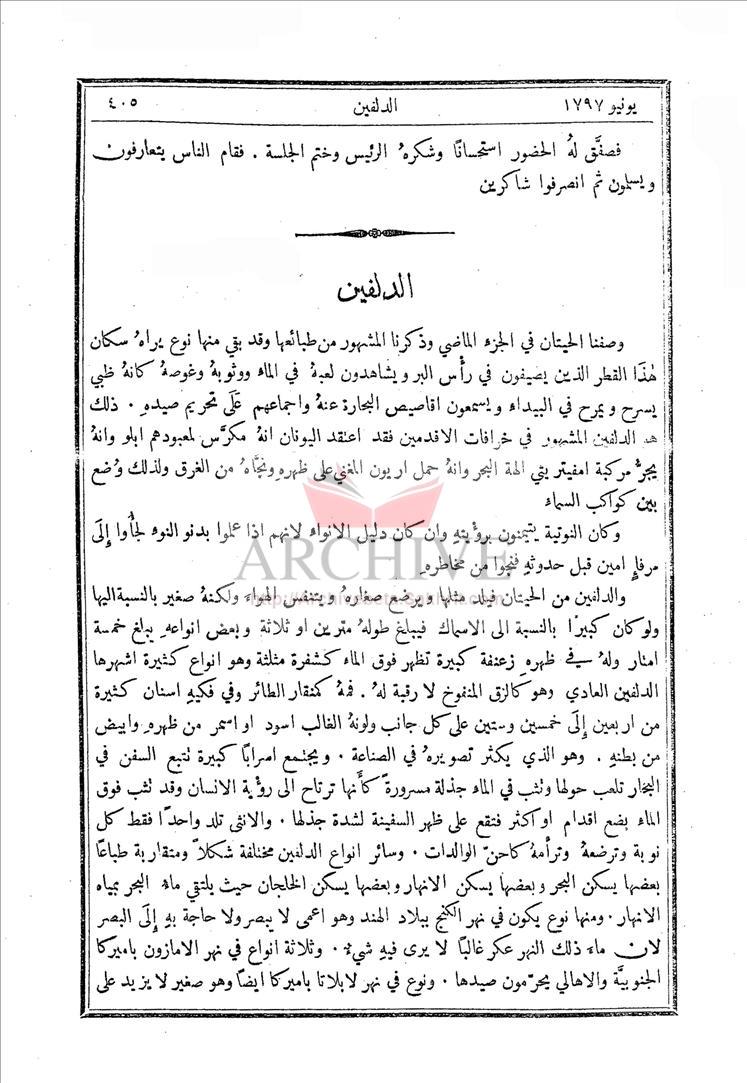 يونيو ١٧٩٧ الدلفين ٤٠٥
فصفَّق لهُ الحضور استحسانًا وشكرهُ الرئيس وختم الجلسة . فقام الناس يتعارفون
ويسلمون ثم انصرفوا شاكرين
الدلفين
وصفنا الحيتان في الجزء الماضي وذكرنا المشهور من طبائعها وقد بقي منها نوع يراهُ سكان
هٰذا القطر الذين يصيفون في رأس البر ويشاهدون لعبهُ في الماء ووثوبهُ وغوصهُ كانهُ ظبي
يسرح ويمرح في البيداء ويسمعون اقاصيص البحارة عنهُ واجماعهم عَلَى تحريم صيدهِ . ذلك
هد الدلفين المشهور في خرافات الاقدمين فقد اعتقد اليونان انهُ مكرَّس لمعبودهم ابلو وانهُ
يجرُّ مركبة امفيتريتي الهة البحر وانهُ حمل اريون المغني على ظهرهِ ونجَّاهُ من الغرق ولذلك وُضع
بين كواكب السماء
وكان النوتية يتيمنون برؤيتهِ وان كان دليل الانواء لانهم اذا عملوا بدنو النوء لجأُوا إِلَى
مرفإٍ امين قبل حدوثهِ فنجوا من مخاطرهِ
ARCHIVE
والدلفين من الحيتان فيلد مثلها ويرضع صغارهُ ويتنفس الهواء ولكنهُ صغير بالنسبة اليها
ولو كان كبيرًا بالنسبة الى الاسماك فيبلغ طولهُ مترين او ثلاثة وبعض انواعهِ يبلغ خمسة
امتار ولهُ في ظهرهِ زعنفة كبيرة تظهر فوق الماء كشفرة مثلثة وهو انواع كثيرة اشهرها
الدلفين العادي وهو كالزق المنفوخ لا رقبة لهُ . فمهُ كمنقار الطائر وفي فكيهِ اسنان كثيرة
من اربعين إِلَى خمسين وستين على كل جانب ولونهُ الغالب اسود او اسمر من ظهرهِ وابيض
من بطنهِ . وهو الذي يكثر تصويرهُ في الصناعة . ويجتمع اسرابًا كبيرة نتبع السفن في
البخار تلعب حولها وثثب في الماء جذلة مسرورةً كأَنها ترتاح الى رؤية الانسان وقد ثثب فوق
الماء بضع اقدام او اكثر فتقع على ظهر السفينة لشدة جذلها . والانثى تلد واحدًا فقط كل
نوبة وترضعهُ وترأمهُ كاحنّ الوالدات . وسائر انواع الدلفين مختلفة شكلاً ومتقاربة طباعًا
بعضها يسكن البحر وبعضها يسكن الانهار وبعضها يسكن الخلجان حيث يلتقي ماء البحر بمياه
الانهار . ومنها نوع يكون في نهر الكنج ببلاد الهند وهو اعمى لا يبصر ولا حاجة بهِ إِلَى البصر
لان ماء ذلك النهر عكر غالبًا لا يرى فيهِ شيءٌ . وثلاثة انواع في نهر الامازون باميركا
الجنوبيَّة والاهالي يحرّمون صيدها . ونوع في نهر لابلاتا باميركا ايضًا وهو صغير لا يزيد على